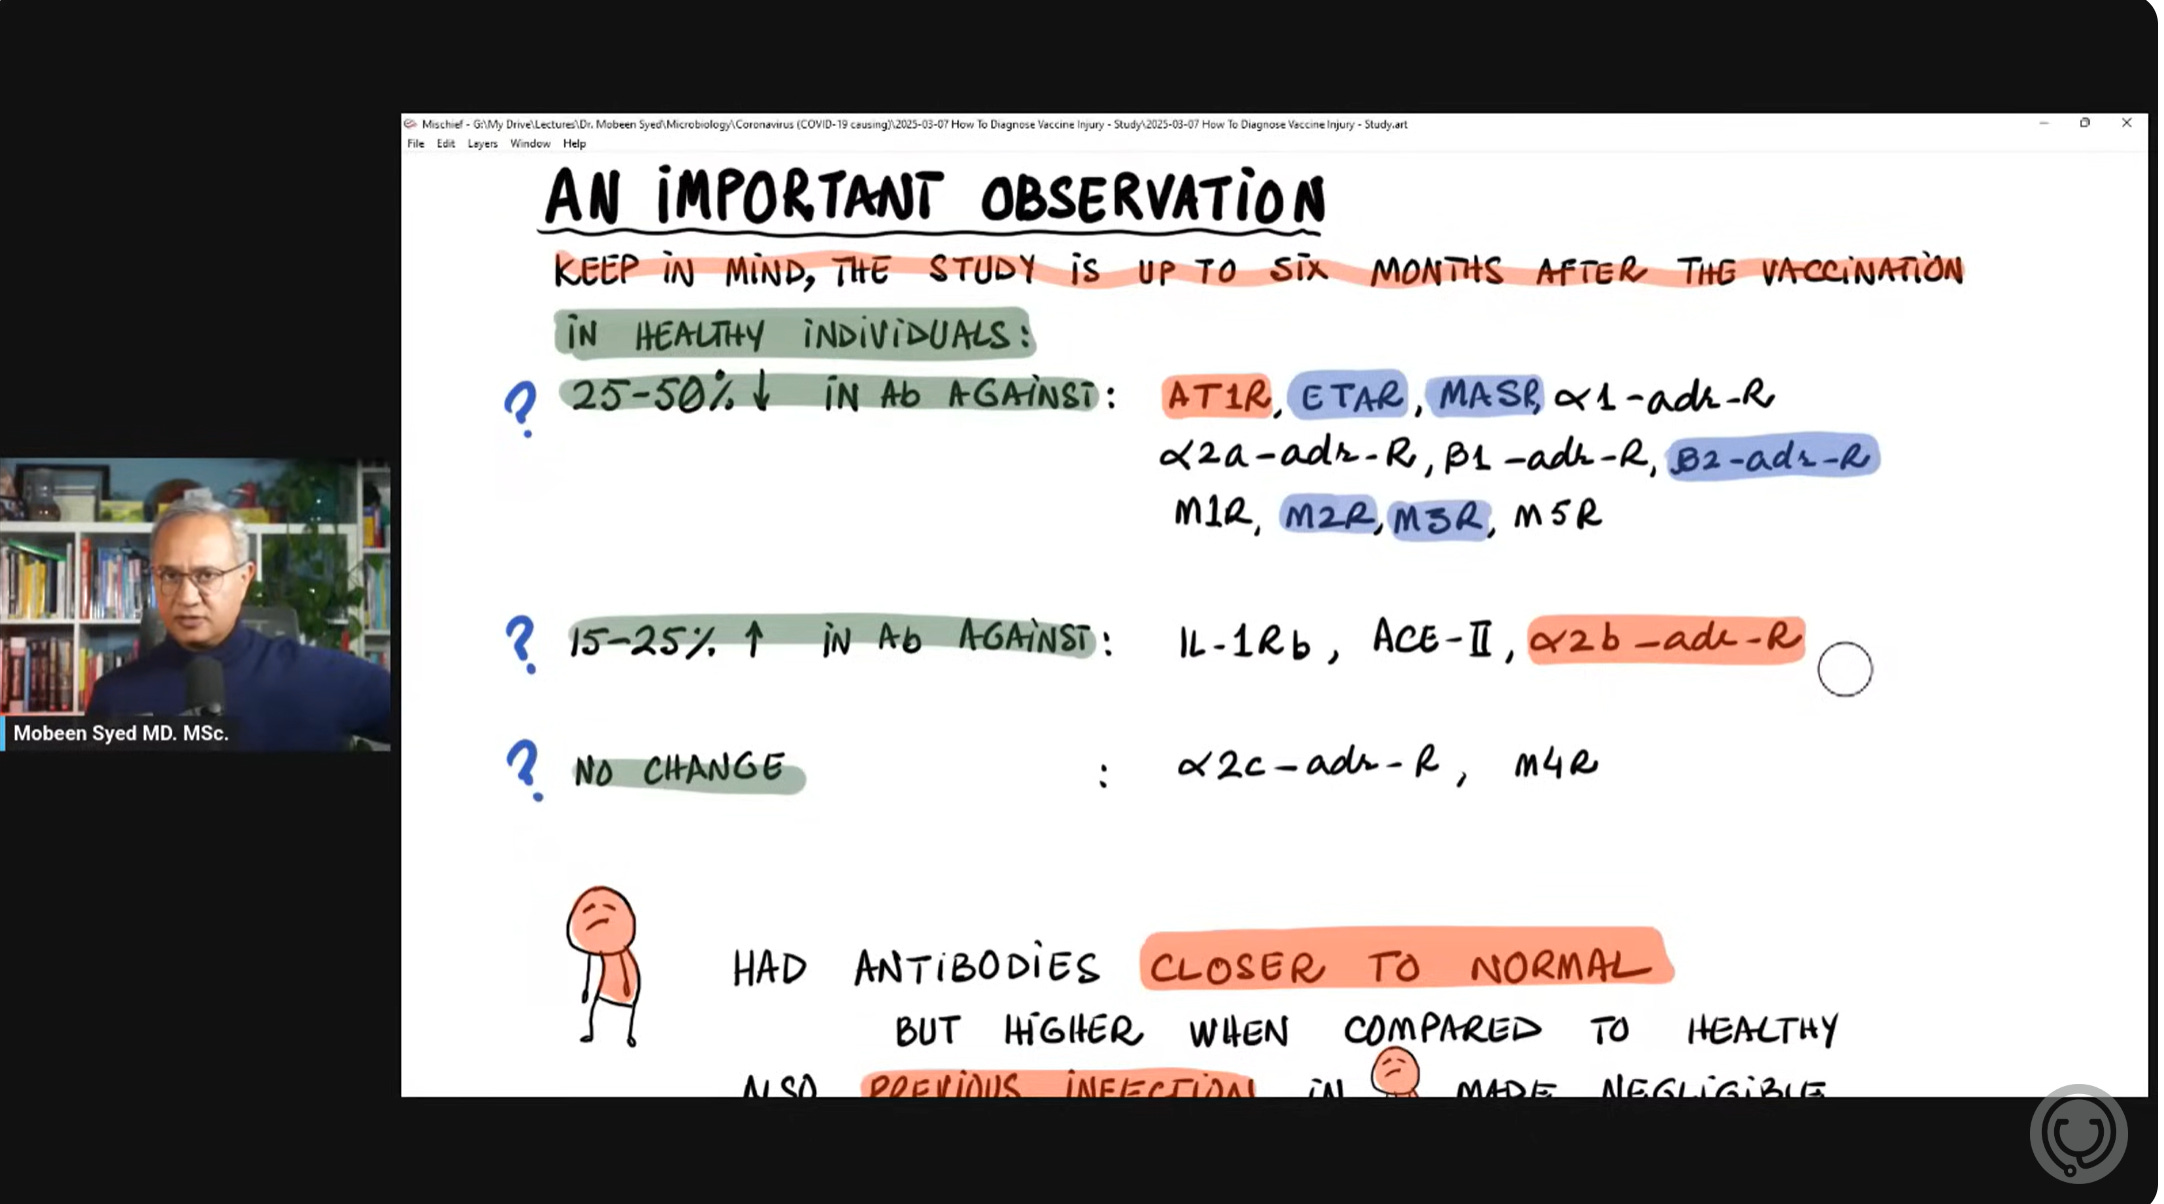 Mischief - G:\My Drive\Lectures\Dr. Mobeen Syed\Microbiology\Coronavirus (COVID-19 causing)\2025-03-07 How To Diagnose Vaccine Injury - Study\2025-03-07 How To Diagnose Vaccine Injury - Study.art
File Edit Layers Window Help
AN IMPORTANT OBSERVATION
KEEP IN MIND, THE STUDY IS UP TO SIX MONTHS AFTER THE VACCINATION
IN HEALTHY INDIVIDUALS:
? 25-50% ↓ IN Ab AGAINST: AT1R, ETAR, MASR, α1-adr-R
α2a-adr-R, β1-adr-R, β2-adr-R
M1R, M2R, M3R, M5R
? 15-25% ↑ IN Ab AGAINST: IL-1Rb, ACE-II, α2b-adr-R
? NO CHANGE : α2c-adr-R, M4R
Mobeen Syed MD. MSc.
HAD ANTIBODIES CLOSER TO NORMAL
BUT HIGHER WHEN COMPARED TO HEALTHY
ALSO PREVIOUS INFECTION IN MADE NEGLIGIBLE